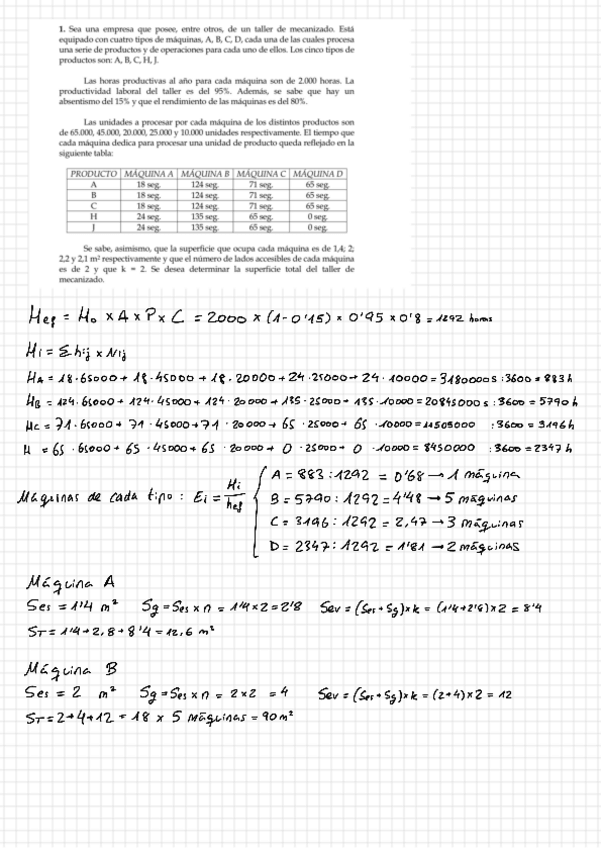 1. Sea una empresa que posee, entre otros, de un taller de mecanizado. Está
equipado con cuatro tipos de máquinas, A, B, C, D, cada una de las cuales procesa
una serie de productos y de operaciones para cada uno de ellos. Los cinco tipos de
productos son: A, B, C, H, J.
Las horas productivas al año para cada máquina son de 2.000 horas. La
productividad laboral del taller es del 95%. Además, se sabe que hay un
absentismo del 15% y que el rendimiento de las máquinas es del 80%.
Las unidades a procesar por cada máquina de los distintos productos son
de 65.000, 45.000, 20.000, 25.000 y 10.000 unidades respectivamente. El tiempo que
cada máquina dedica para procesar una unidad de producto queda reflejado en la
siguiente tabla:
PRODUCTO MÁQUINA A MÁQUINA B MÁQUINA C MÁQUINA D
A 18 seg. 124 seg. 71 seg. 65 seg.
B 18 seg. 124 seg. 71 seg. 65 seg.
C 18 seg. 124 seg. 71 seg. 65 seg.
H 24 seg. 135 seg. 65 seg. 0 seg.
J 24 seg. 135 seg. 65 seg. 0 seg.
Se sabe, asimismo, que la superficie que ocupa cada máquina es de 1,4; 2;
2,2 y 2,1 m² respectivamente y que el número de lados accesibles de cada máquina
es de 2 y que k = 2. Se desea determinar la superficie total del taller de
mecanizado.
Hef = Ho × A × P × C = 2000 × (1-0'15) × 0'95 × 0'8 = 1292 horas
Hi = Σ hij × Nij
HA = 18·65000 + 18·45000 + 18·20000 + 24·25000 + 24·10000 = 3180000s : 3600 = 883 h
HB = 124·65000 + 124·45000 + 124·20000 + 135·25000 + 135·10000 = 20845000 s : 3600 = 5790 h
HC = 71·65000 + 71·45000 + 71·20000 + 65·25000 + 65·10000 = 11505000 : 3600 = 3196 h
H = 65·65000 + 65·45000 + 65·20000 + 0·25000 + 0·10000 = 8450000 : 3600 = 2347 h
Máquinas de cada tipo : Ei = Hi/hef
A = 883 : 1292 = 0'68 → 1 máquina
B = 5790 : 1292 = 4'48 → 5 máquinas
C = 3196 : 1292 = 2,47 → 3 máquinas
D = 2347 : 1292 = 1'81 → 2 máquinas
Máquina A
Ses = 1'4 m² Sg = Ses × n = 1'4 × 2 = 2'8 Sev = (Ses + Sg) × k = (1'4 + 2'8) × 2 = 8'4
ST = 1'4 + 2,8 + 8'4 = 12,6 m²
Máquina B
Ses = 2 m² Sg = Ses × n = 2 × 2 = 4 Sev = (Ses + Sg) × k = (2+4) × 2 = 12
ST = 2 + 4 + 12 = 18 × 5 máquinas = 90 m²